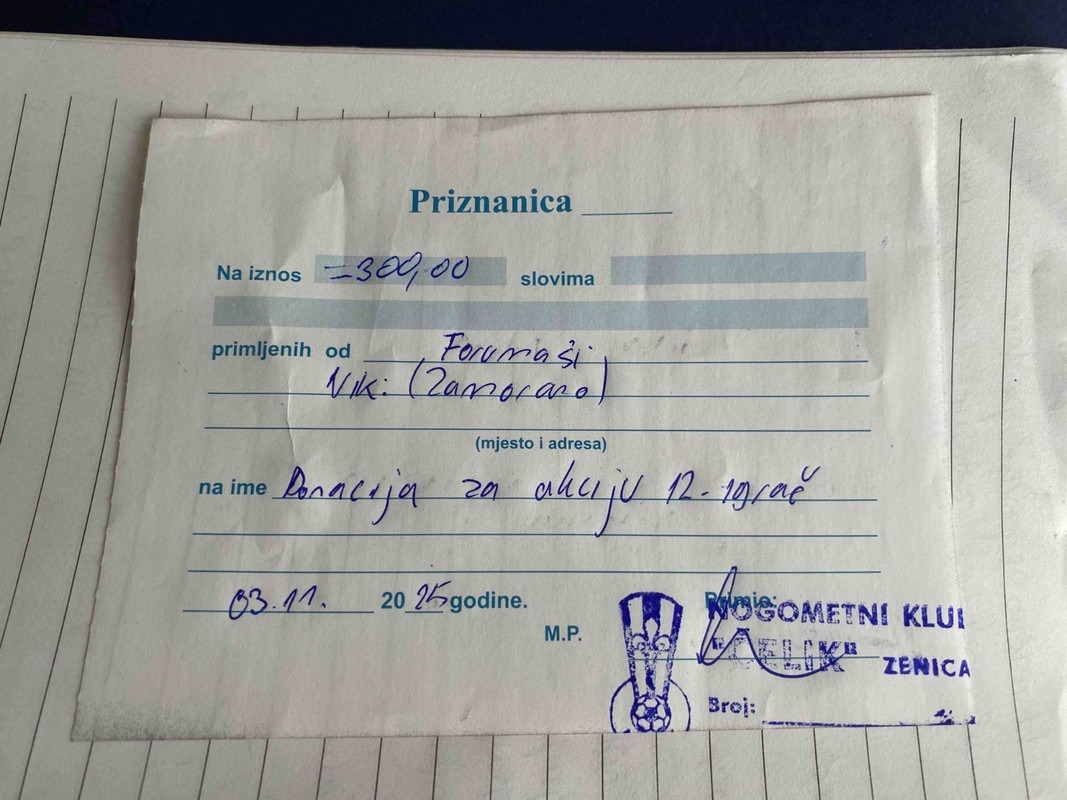 Priznanica
Na iznos =300,00 slovima
primljenih od Forumaši
Nik: (Zamorano)
(mjesto i adresa)
na ime Donacija za akciju 12. igrač
03.11. 2025 godine.
M.P.
Primio:
NOGOMETNI KLUB
"ČELIK" ZENICA
Broj: